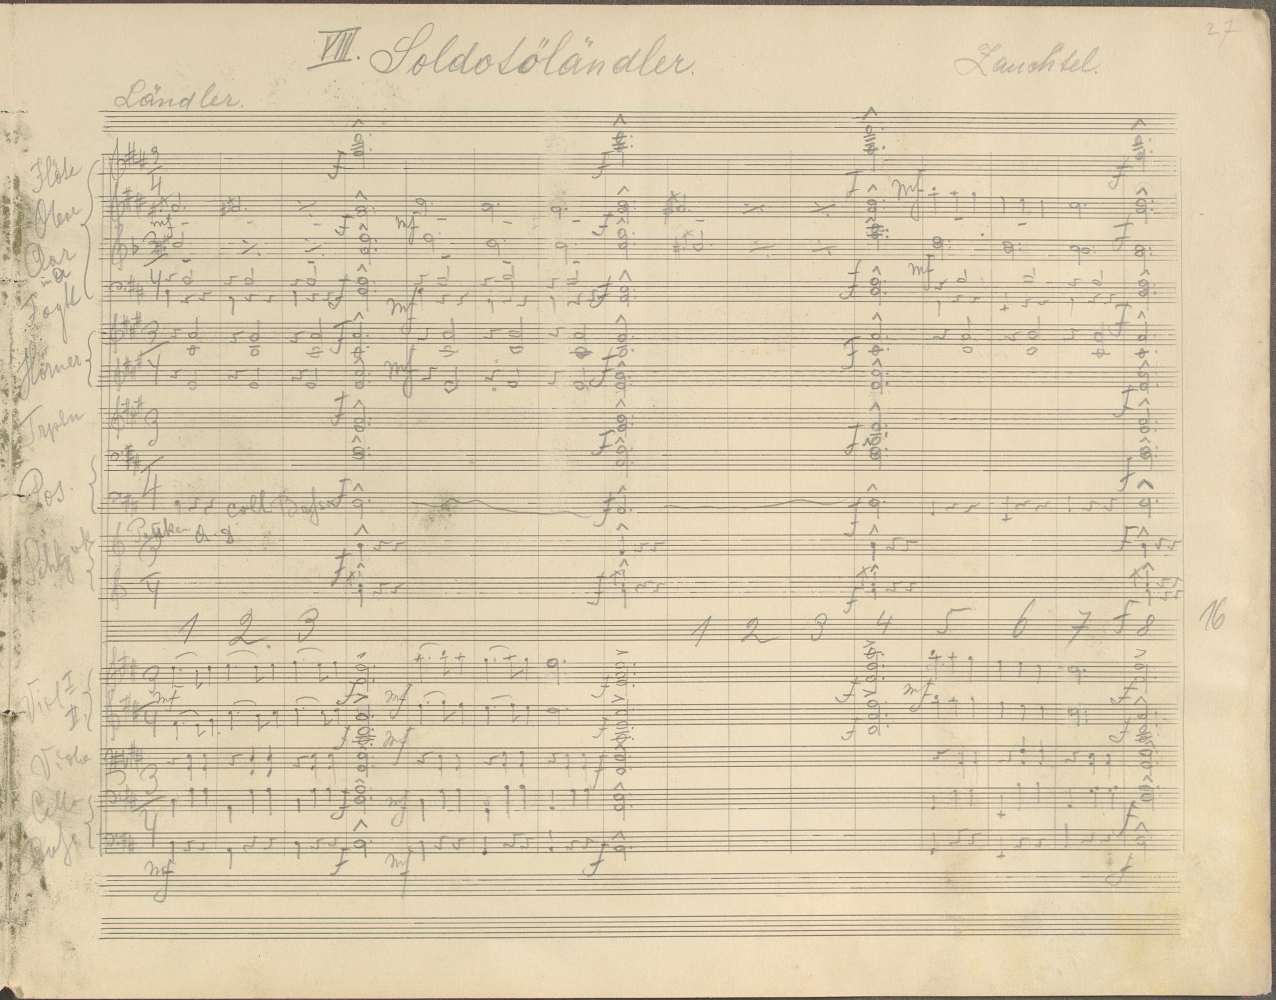 27
VIII. Soldotöländler.
Zauchtel.
Ländler.
Flöte
Oboe
Clar
in a
Fagk
Hörner
Trptn
Pos.
coll Basso
Pauken A. d
Schlgwk
1 2. 3 1 2 3 4 5 6 7 8 16
Viol I
II
Viola
Cello
Bass